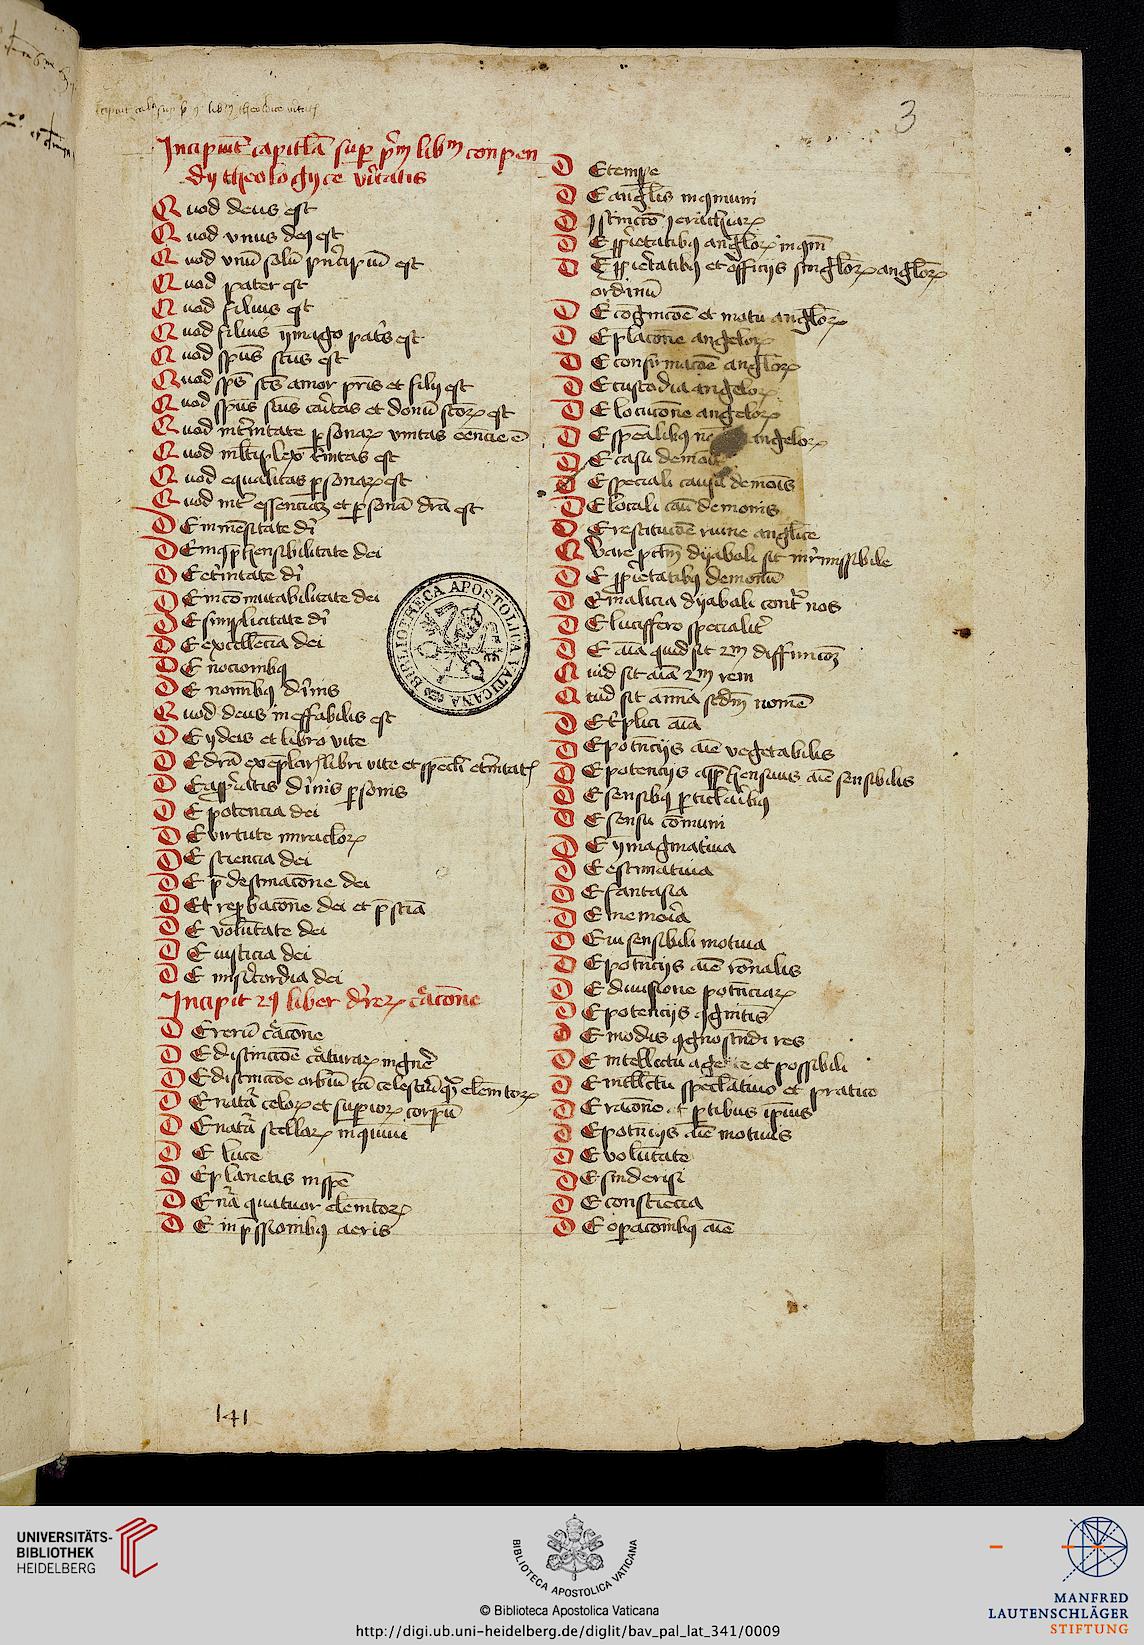 3
Incipiunt capitla sup pm libm conpen
dij theologyce vitatis
Quod deus est
Quod vnus deus est
Quod vnu solu pncipiu est
Quod pater est
Quod filius est
Quod filius ymago patis est
Quod spus scus est
Quod sps scs amor pris et filij est
Quod spus scus caritas et donu scorum est
Quod in trinitate personarum vnitas eencie e
Quod multiplex trinitas est
Quod equalitas personarum est
Quod inter essenciam et persona dria est
De inmesitate di
De inqphensibilitate dei
De eternitate di
De inco mutabilitate dei
De simplicitate di
De excellecia dei
De nocionibus
De nominibus diuinis
Quod deus ineffabilis est
De ydeis et libro vite
De dria exeplar libri vite et speculi eternitatis
De appriatis diuinis personis
De potencia dei
De virtute miraclorum
De sciencia dei
De pdestinacone dei
De reprobacone dei et pscia
De volutate dei
De iusticia dei
De misicordia dei
Incipit 2us liber de rerum creacone
De reru creacone
De distinccoe creaturarum in gene
De distinccoe orbiu ta celestiu quam elemetorum
De natura celorum et superiorum corporum
De natura stellarum in communi
De luce
De planetis in spe
De na quatuor elemetorum
De inpssionibus aeris
De tempe
De anglis in communi
Distinccoe ierarchiarum
De pprietatibus anglorum in communi
De pprietatibus et officijs singlorum anglorum
ordinu
De cognicoe et motu anglorum
De placone angelorum
De confirmacoe anglorum
De custodia angelorum
De locucone angelorum
De spealibus angelorum
De casu demonu
De speciali causa demonis
De locali casu demonis
De restitucoe ruine anglice
Quare pctm dyaboli sit irremissibile
De pprietatibus demonu
De malicia dyaboli contra nos
De luciffero specialiter
De aia quid sit 2m diffinicoem
Quid sit aia 2m rem
Quid sit anima scdm nomen
De triplici aia
De potencijs aie vegetabilis
De potencijs apphensiuis aie sensibilis
De sensibus pticlaribus
De sensu comuni
De ymaginatiua
De estimatiua
De fantasia
De memoria
De vi sensibili motiua
De potencijs aie ronalis
De diuisione potenciarum
De potencijs cognitiuis
De modis cognoscendi res
De intellectu agente et possibili
De intellectu speculatiuo et pratico
De racone et ptibus ipsius
De potencijs aie motiuis
De volutate
De sinderisi
De consciecia
De operacionibus aie
BIBLIOTHECA APOSTOLICA VATICANA
141
UNIVERSITÄTS-
BIBLIOTHEK
HEIDELBERG
BIBLIOTECA APOSTOLICA VATICANA
© Biblioteca Apostolica Vaticana
http://digi.ub.uni-heidelberg.de/diglit/bav_pal_lat_341/0009
MANFRED
LAUTENSCHLÄGER
STIFTUNG